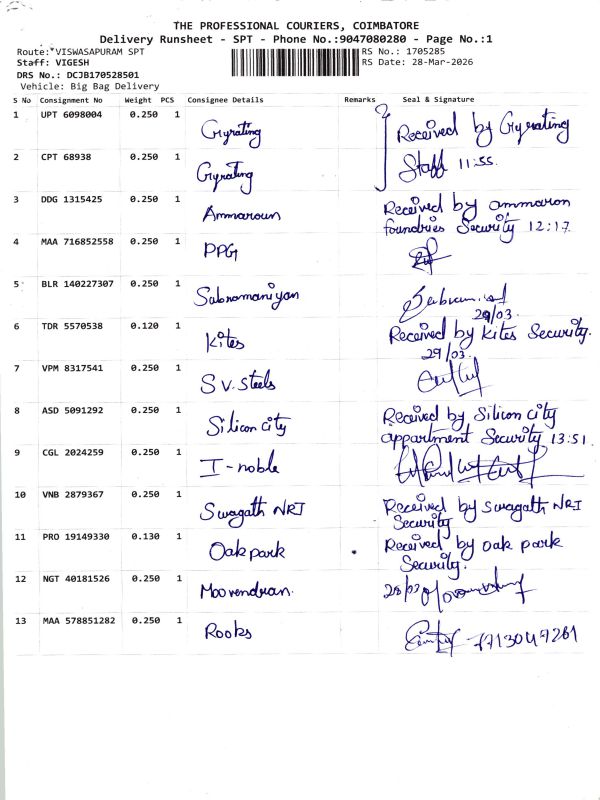 THE PROFESSIONAL COURIERS, COIMBATORE
Delivery Runsheet - SPT - Phone No.:9047080280 - Page No.:1
Route:*VISWASAPURAM SPT
RS No.: 1705285
Staff: VIGESH
RS Date: 28-Mar-2026
DRS No.: DCJB170528501
Vehicle: Big Bag Delivery
S No Consignment No Weight PCS Consignee Details Remarks Seal & Signature
1 UPT 6098004 0.250 1 Gyrating Received by Gyrating
2 CPT 68938 0.250 1 Gyrating Staff 11:55.
3 DDG 1315425 0.250 1 Ammaroun Received by ammaron
foundries Security 12:17
4 MAA 716852558 0.250 1 PPG
5 BLR 140227307 0.250 1 Subramaniyan
29/03.
6 TDR 5570538 0.120 1 Kites Received by kites Security.
29/03.
7 VPM 8317541 0.250 1 S V. Steels
8 ASD 5091292 0.250 1 Silicon city Received by Silicon city
appartment Security 13:51.
9 CGL 2024259 0.250 1 I-noble
10 VNB 2879367 0.250 1 Swagath NRI Received by Swagath NRI
Security
11 PRO 19149330 0.130 1 Oak park Received by oak park
Security.
12 NGT 40181526 0.250 1 Moovendran.
13 MAA 578851282 0.250 1 Rooks